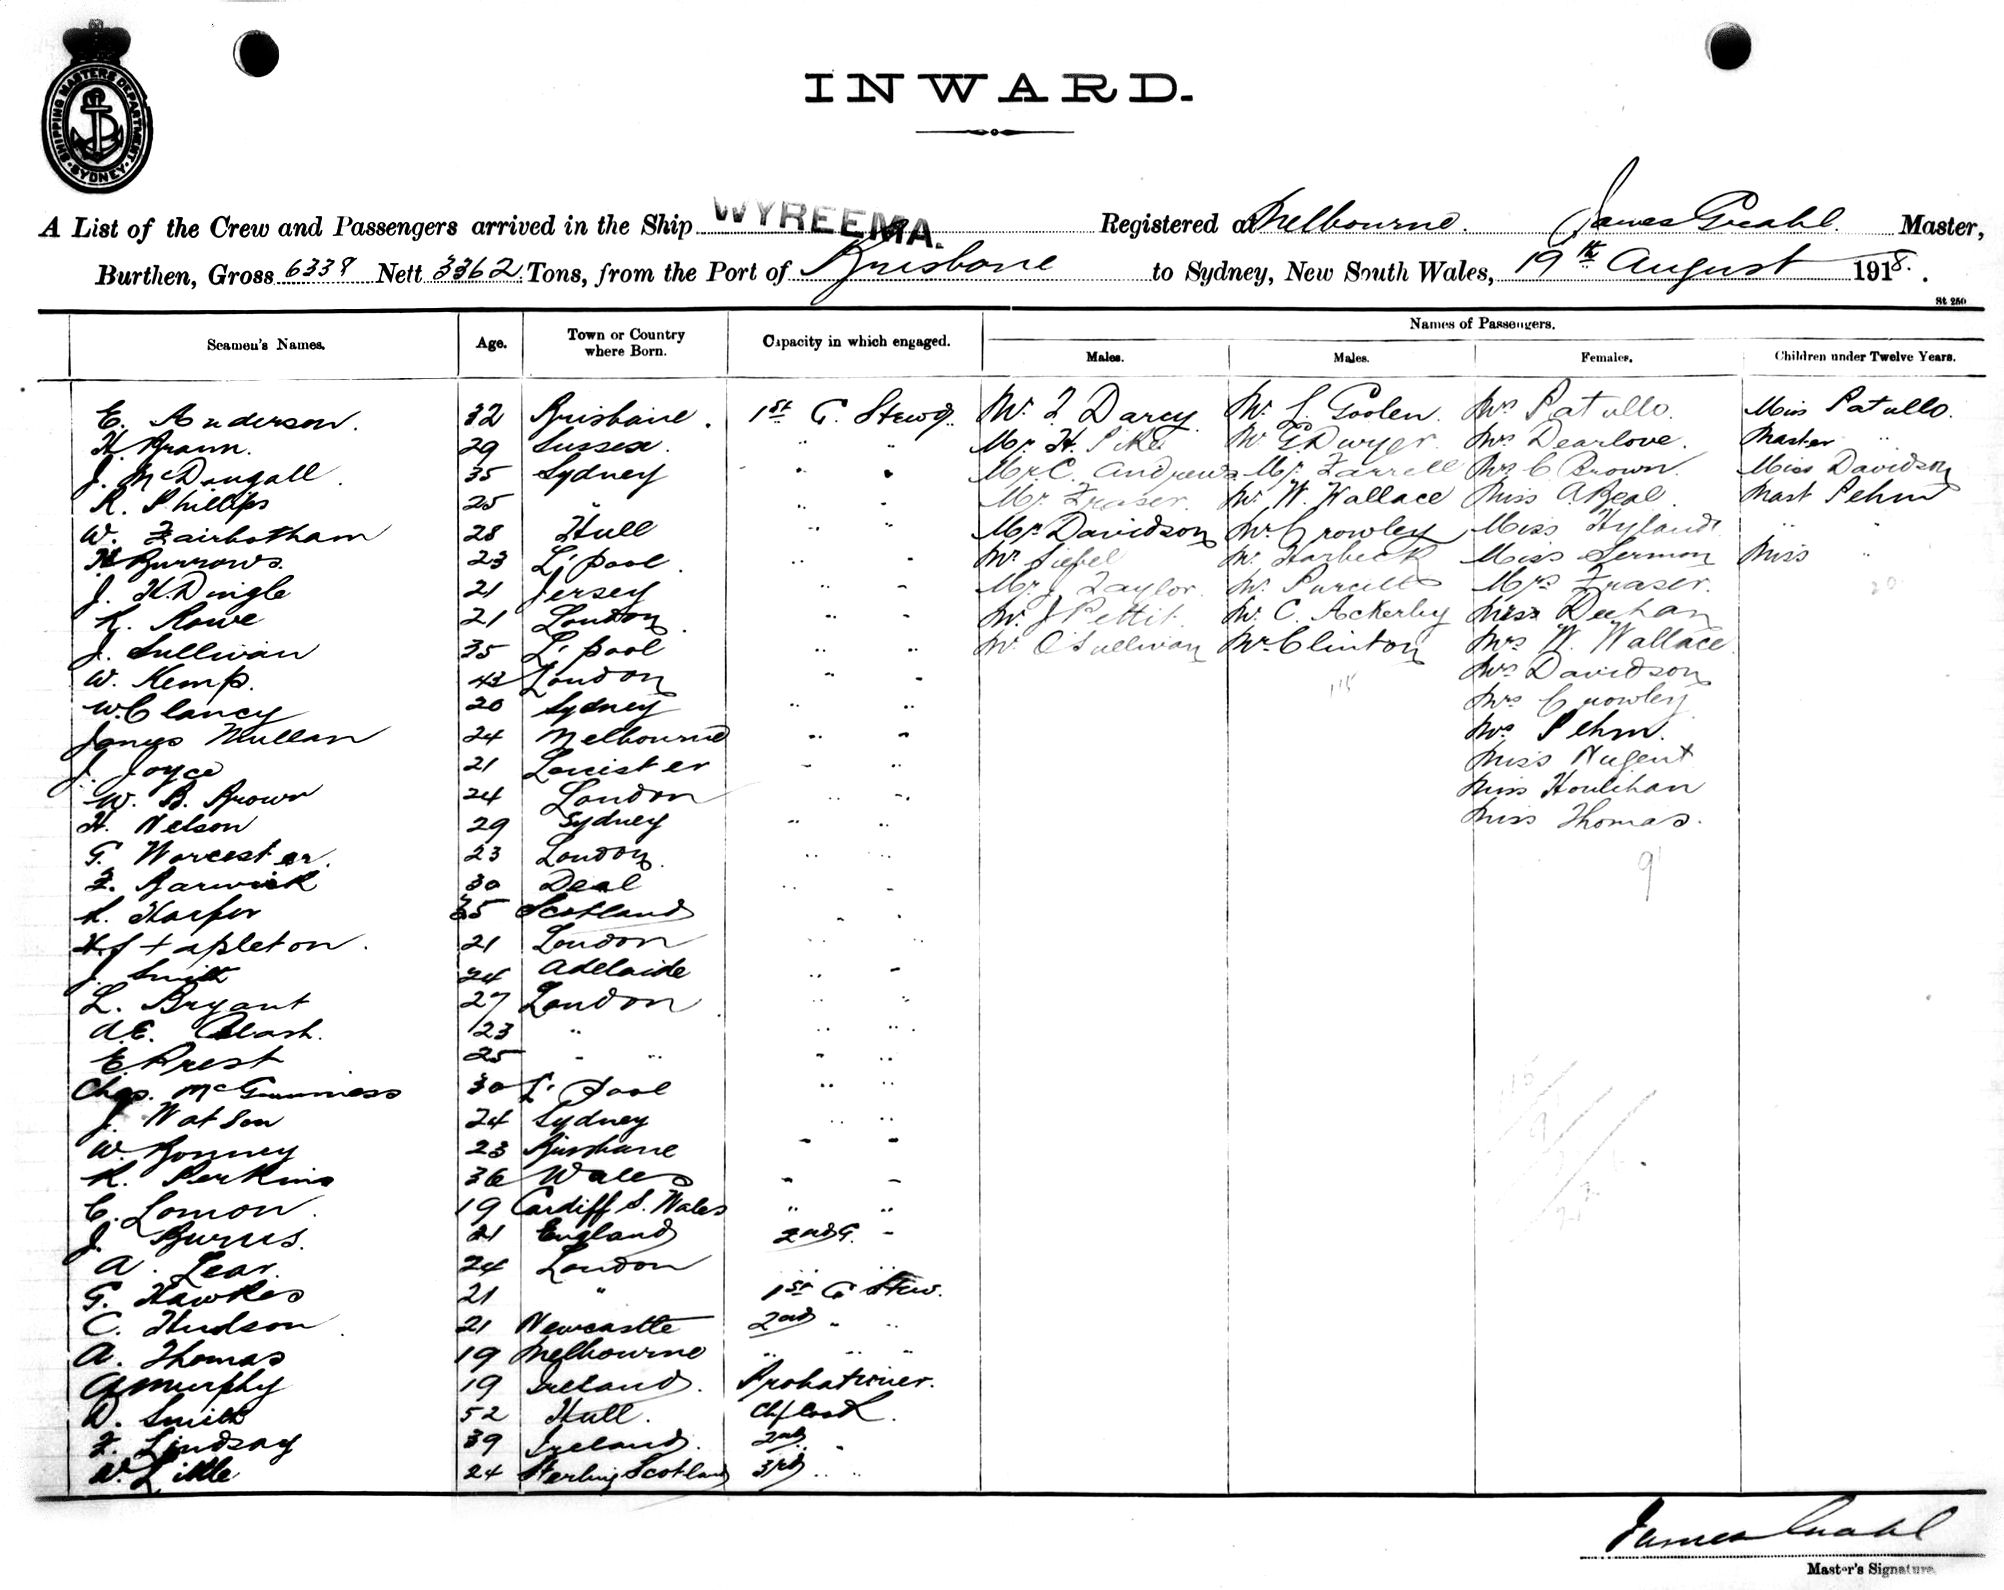 SHIPPING MASTERS DEPARTMENT SYDNEY
INWARD.
A List of the Crew and Passengers arrived in the Ship WYREEMA. Registered at Melbourne. James Master,
Burthen, Gross 6338 Nett 3362 Tons, from the Port of Brisbane to Sydney, New South Wales, 19th August 1918.
St 250
Names of Passengers.
Seamen's Names. Age. Town or Country where Born. Capacity in which engaged. Males. Males. Females. Children under Twelve Years.
E. Anderson. 32 Brisbane. 1st C. Stewd. Mr. J. Darcy Mr. L. Goolen. Mrs Patullo. Miss Patullo.
H. Brann. 29 Sussex. " " Mr. H. Pike Mr G. Dwyer. Mrs Dearlove. Master "
J. McDougall. 35 Sydney " " Mr. C. Andrews Mr. Farrell Mrs C. Brown. Miss Davidson
R. Phillips 25 " " " Mr. Fraser. Mr. W. Wallace Miss A. Beal Mast Pehm
W. Fairbotham 28 Hull " " Mr. Davidson Mr. Crowley Miss Hyland. " "
H. Burrows. 23 L'pool. " " Mr. Siefel Mr. Harbeck Miss Sermon Miss "
J. H. Dingle 21 Jersey " " Mr. J. Taylor. Mr. Purcell Mrs Fraser. 20
R. Rowe 21 London. " " Mr. J Pettit. Mr. C. Ackerby Miss Deehan
J. Sullivan 35 L'pool " " Mr. O'Sullivan Mr. Clinton Mrs W. Wallace.
W. Kemp. 43 London " " Mrs Davidson
W. Clancy 20 Sydney " " Mrs Crowley
James Mullan 24 Melbourne " " Mrs Pehm.
J. Joyce 21 " " Miss Nugent
W. B. Brown 24 London " " Miss Houlihan
H. Nelson 29 Sydney " " Miss Thomas.
G. Worcester. 23 London. " "
F. Barwick 30 Deal " " 9
R. Harper 35 Scotland " "
H. Stapleton. 21 London " "
J. Smith 24 Adelaide " "
L. Bryant 27 London " "
A.E. Clash. 23 " " "
E. Prest 25 " " " "
Chas. McGuinness 30 L'pool " "
J. Watson 24 Sydney " "
W. Bonney 23 Brisbane " "
R. Perkins 36 Wales " "
C. Lomon. 19 Cardiff S. Wales " "
J. Burns. 21 England 2nd C. "
A. Lear. 24 London " "
G. Hawkes 21 " 1st C Stew.
C. Hudson 21 Newcastle 2nd " "
A. Thomas 19 Melbourne " " "
A Murphy 19 Ireland. Probationer.
W. Smith 52 Hull. Chf Cook.
F. Lindsay 39 Ireland. 2nd "
W. Little 24 Sterling Scotland 3rd " "
James
Master's Signature.